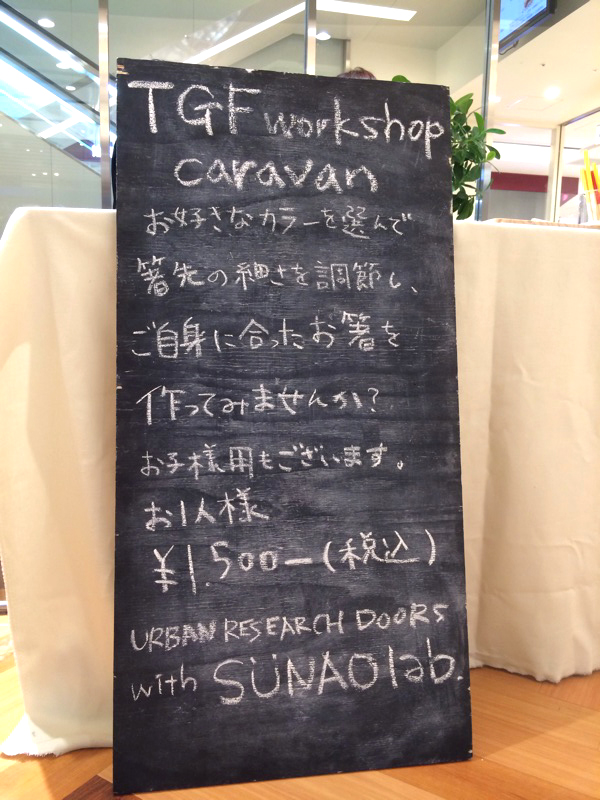 TGF workshop
caravan
お好きなカラーを選んで
箸先の細さを調節し、
ご自身に合ったお箸を
作ってみませんか？
お子様用もございます。
お1人様
¥1.500ー(税込)
URBAN RESEARCH DOORS
with SUNAOlab.